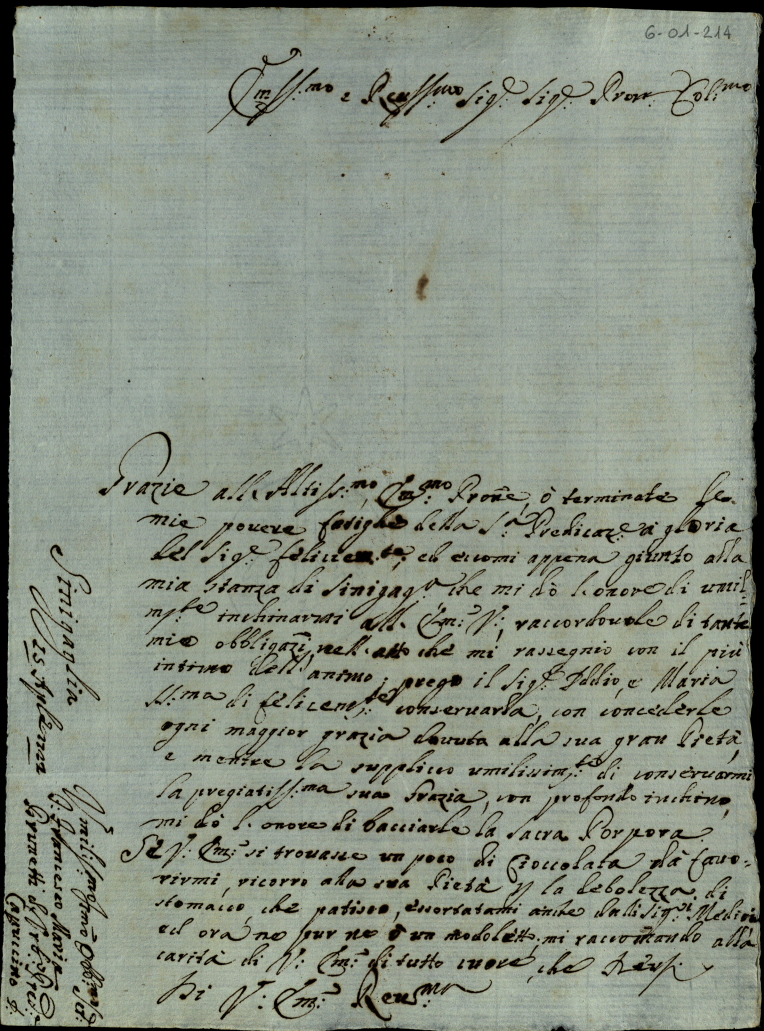 6-01-214
Em:ss:mo e Reu:ssmo Sig:e Sig:e Pron Col:mo
Grazie all'Altiss:mo, Em:mo Prone, ò terminate le
mie povere fatighe della S:a Predicaz:e a gloria
del Sig:e felicem:te, ed eccomi appena giunto alla
mia stanza di Sinigag:a che mi dò l'onore di umil=
m:te inchinarmi all' Em:a V:, raccordevole di tante
mie obbligazi, nell'atto che mi rassegnio con il più
intimo dell'animo; prego il Sig:e Iddio, e Maria
SS:ma di felicem:te conservarla, con concederle
ogni maggior grazia dovuta alla sua gran Pietà,
e mentre la supplico umilissim:te di conservarmi
la pregiatiss:ma sua Grazia, con profondo inchino,
mi dò l'onore di bacciarle la Sacra Porpora
Se V: Em: si trovasse un poco di Cioccolata da favo-
rirmi, ricorro alla sua Pietà p la debolezza di
stomaco, che patisco, essortatami anche dalli Sig:i Medici
ed ora ne pur ne ò un modolett; mi raccomando alla
carità di V: Em: di tutto cuore, che
Di V: Em: Reu:ma
Sinigaglia
25 Aple
Umiliss:mo
F: Francesco Maria
Brunetti
Capuccino